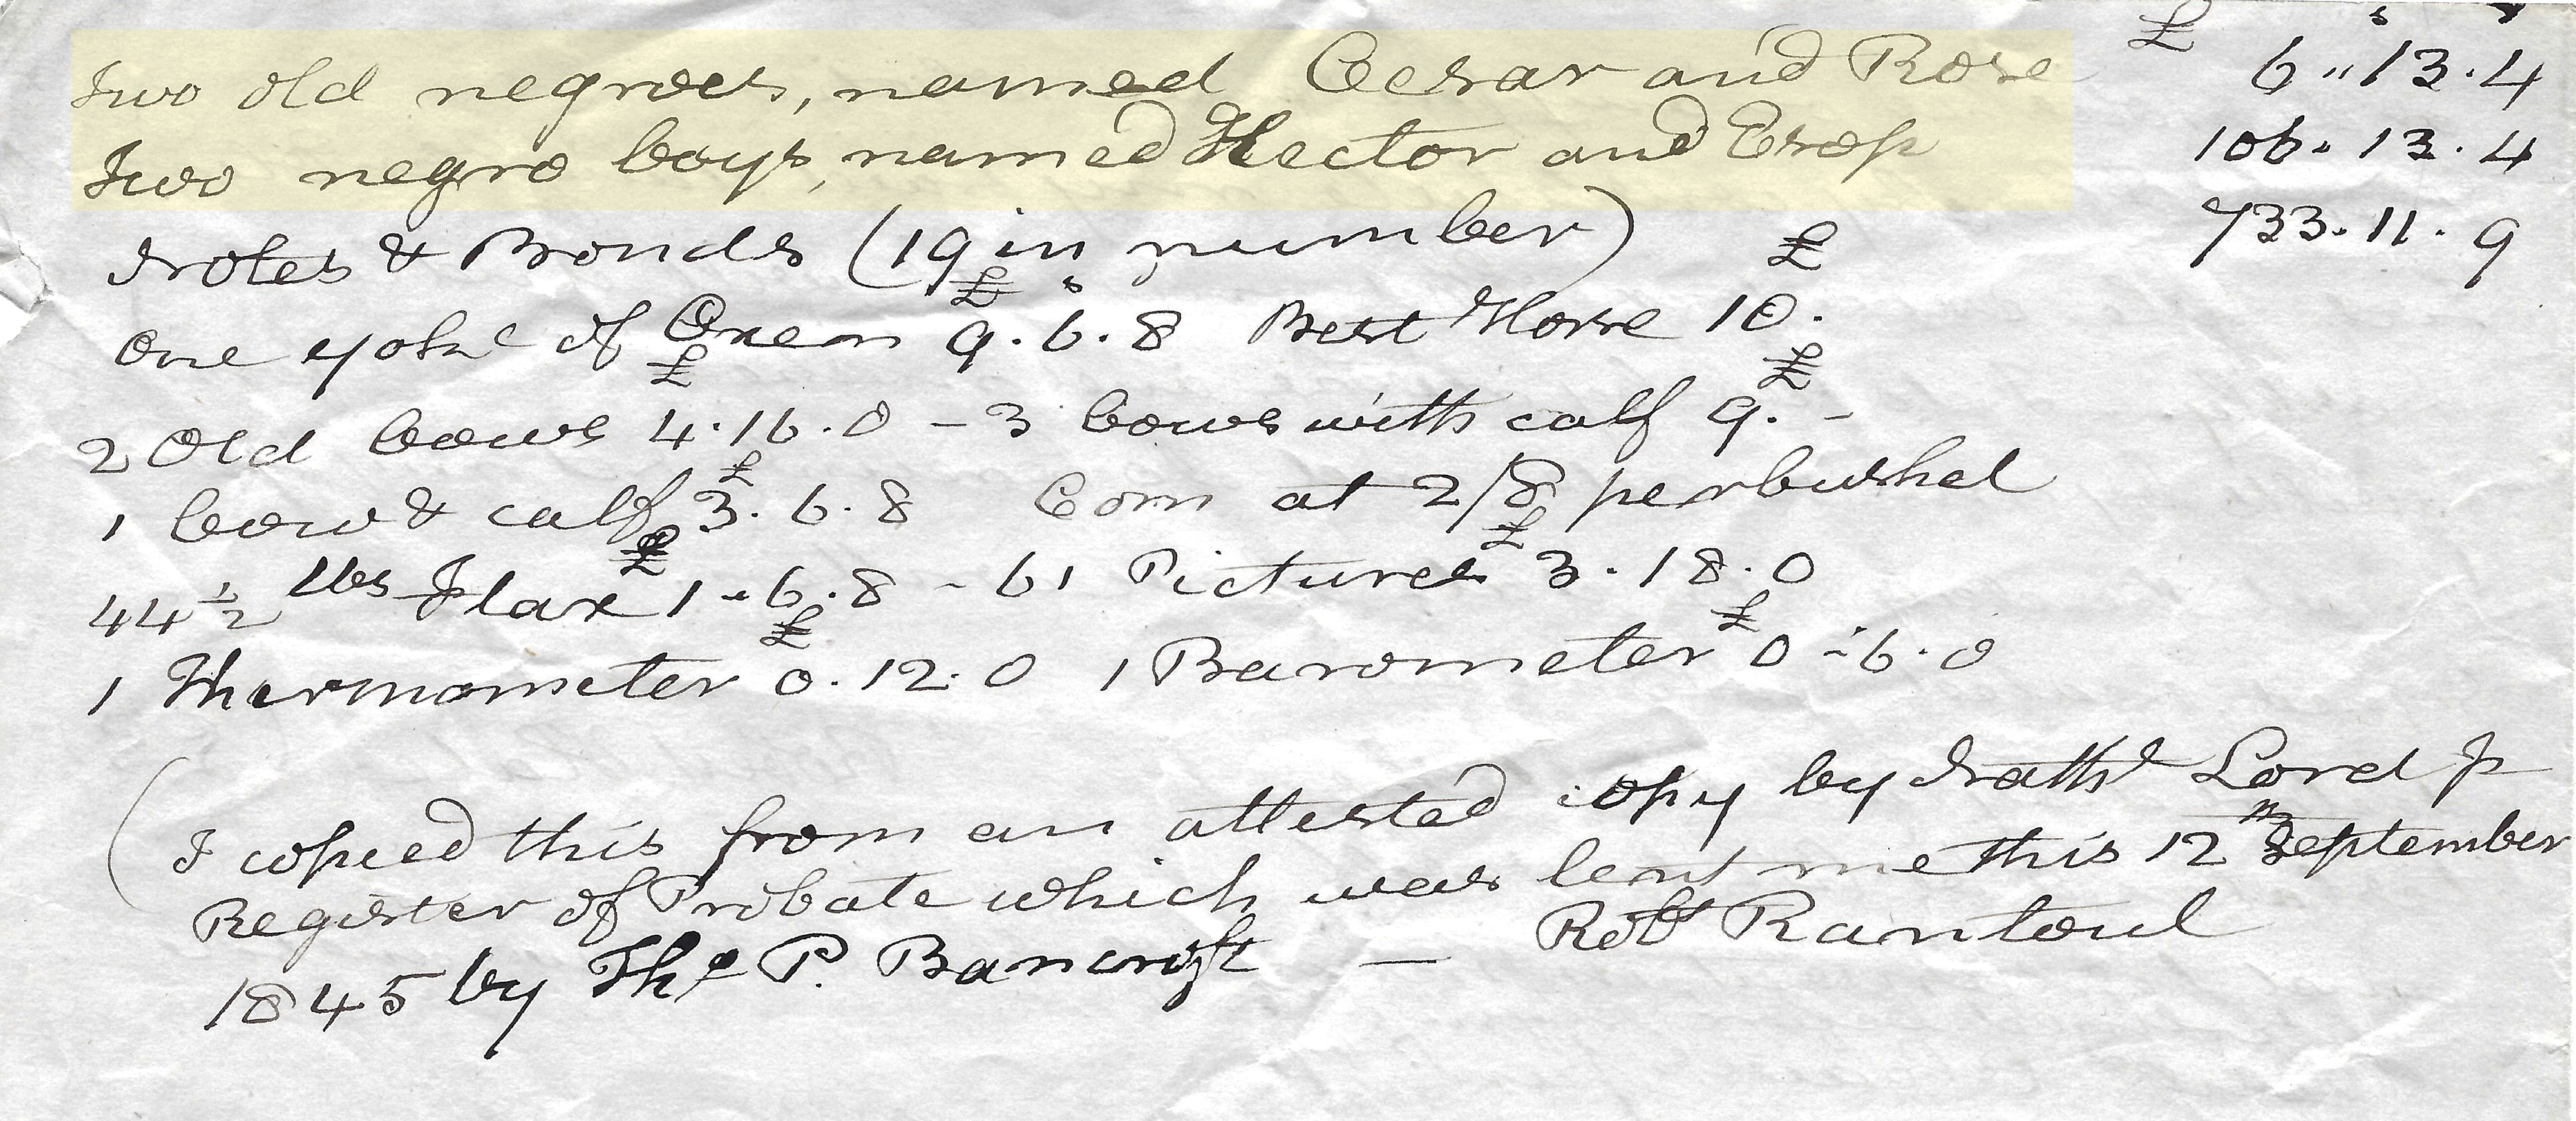 £ s
Two old negroes, named Cesar and Rose 6 „ 13 . 4
Two negro boys, named Hector and Esop 106 . 13 . 4
Notes & Bonds (19 in number) 733 . 11 . 9
One yoke of Oxen £ 9 . 6 . 8 Best Horse £ 10 .
2 Old Cows £ 4 . 16 . 0 – 3 Cows with calf £ 9 . –
1 Cow & calf £ 3 . 6 . 8 Corn at 2/8 per bushel
44 ½ lbs Flax £ 1 . 6 . 8 – 61 Pictures £ 3 . 18 . 0
1 Thermometer £ 0 . 12 . 0 1 Barometer £ 0 . 6 . 0
(I copied this from an attested copy by Nathl Lord Jr
Register of Probate which was lent me this 12th September
1845 by Tho P. Bancroft — Robt Rantoul